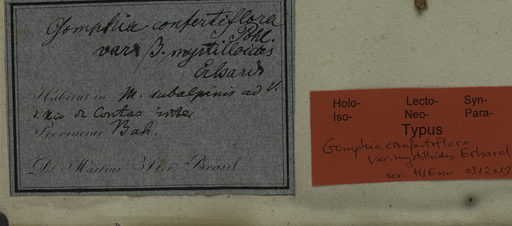 Gomphia confertiflora
Pohl.
var. β. myrtilloides
Erhard
Habitat in M. subalpinis ad V.
Rio de Contas inter
Provinciae Bah.
Dr. Martius Iter Brasil
Holo- Lecto- Syn-
Iso- Neo- Para-
Typus
Gomphia confertiflora
var. myrtilloides Erhard
scr. HJEsser 03/2017